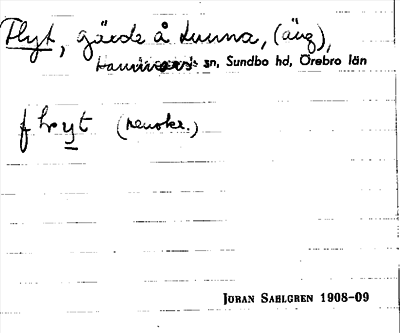 Flyt, gärde å Lunna, (äng),
Hammars sn, Sundbo hd, Örebro län
flyt (neutr.)
JÖRAN SAHLGREN 1908-09